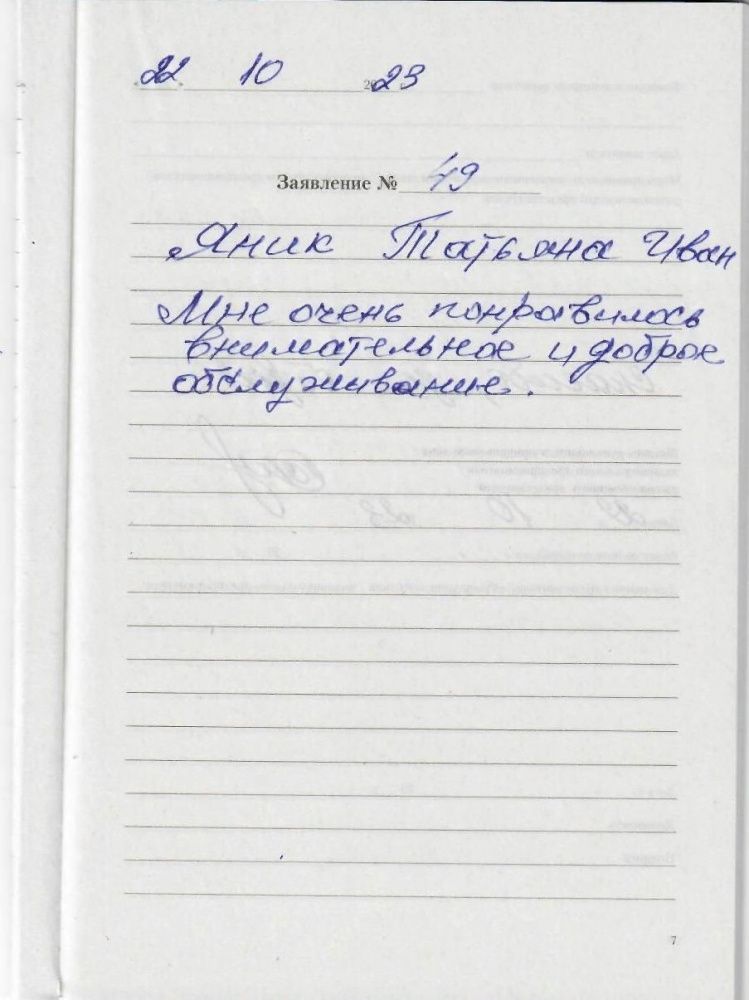 22 10 2023
Заявление № 49
Яник Татьяна Иван
Мне очень понравилось
внимательное и доброе
обслуживание.
7